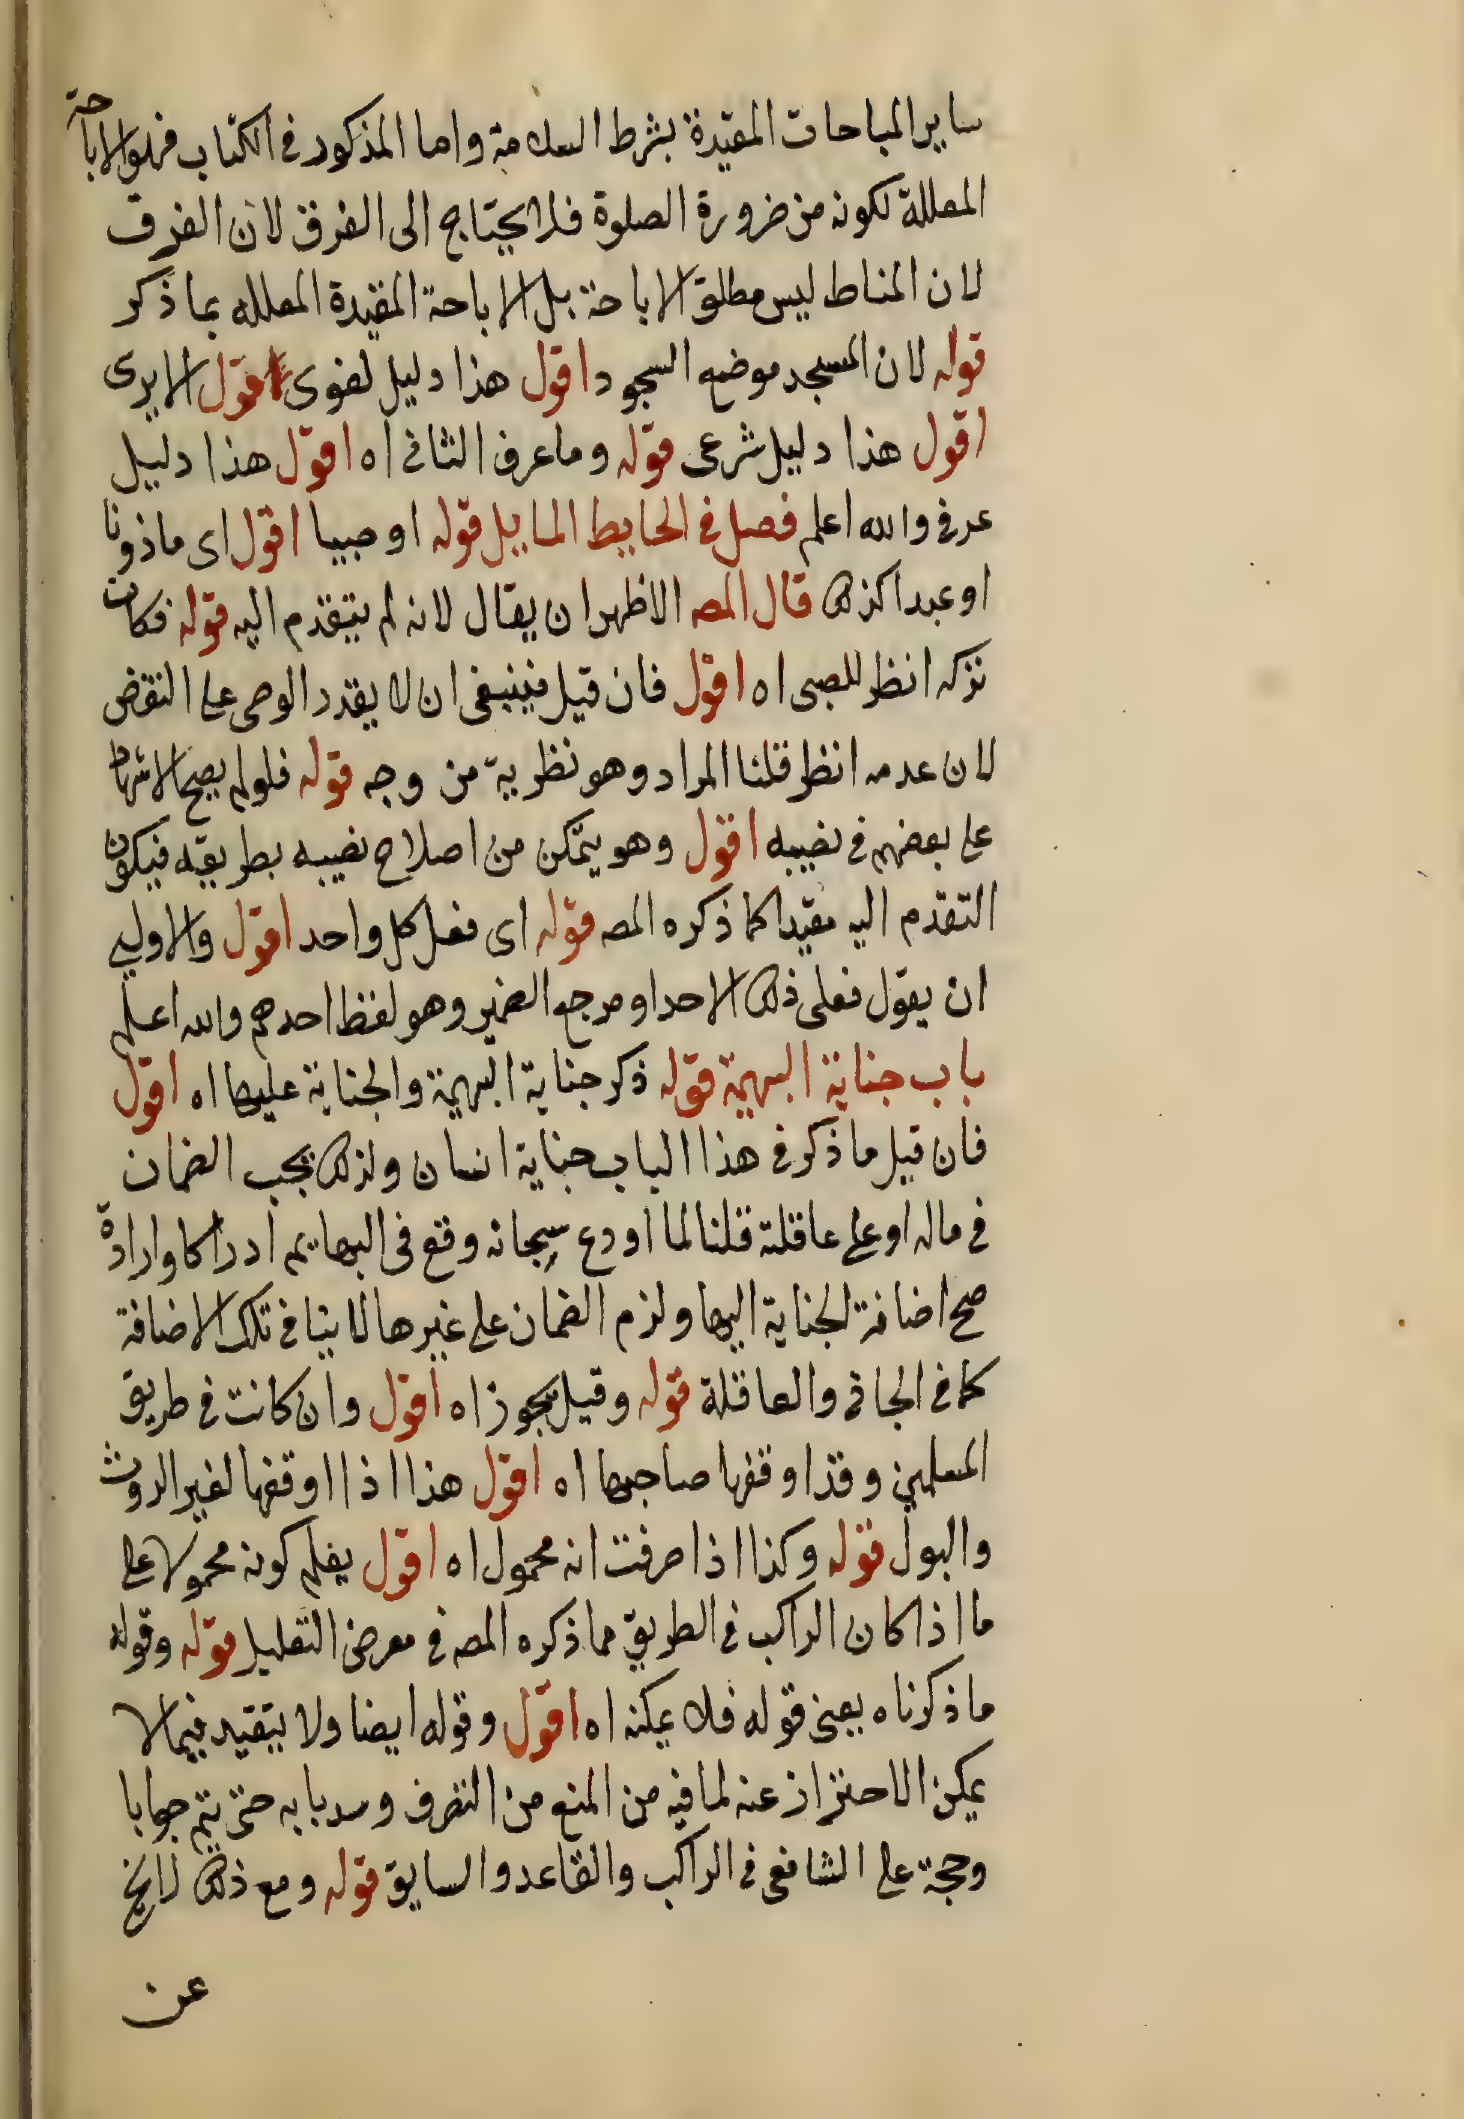 ساير المباحات المقيدة بشرط السلامة واما المذكور فى الكتاب فهو الاباحة
المعللة لكونه من ضرورة الصلوة فلا يحتاج الى الفرق لان الفرق
لان المناط ليس مطلق الاباحة بل الاباحة المقيدة المعلله بما ذكر
قوله لان المسجد موضع السجود اقول هذا دليل لغوى قول الا يرى
اقول هذا دليل شرعى قوله وما عرف الثانى اه اقول هذا دليل
عرفى والله اعلم فصل فى الحايط المايل قوله او صبيا اقول اى ماذونا
او عبدا كذلك قال المصه الاظهر ان يقال لانه لم يتقدم اليه قوله فكان
تركه انظر للصبى اه اقول فان قيل فينبغى ان لا يقدر الوصى على النقض
لان عدمه انظر قلنا المراد وهو نظرية من وجه قوله فلو لم يصح الاشهاد
على بعضهم فى نصيبه اقول وهو يتمكن من اصلاح نصيبه بطريقه فيكون
التقدم اليه مفيدا كما ذكره المصه قوله اى فعل كل واحد اقول والاولى
ان يقول فعلى ذلك الاحد او مرجع الضمير وهو لفظ احدهم والله اعلم
باب جناية البهيمة قوله ذكر جناية البهيمة والجناية عليها اه اقول
فان قيل ما ذكر فى هذا الباب جناية انسان ولذلك يجب الضمان
فى ماله او على عاقلته قلنا لما اودع سبحانه وقع فى البهايم ادراكا وارادة
صح اضافة الجناية اليها ولزم الضمان على غيرها لا ينافى تلك الاضافة
كما فى الجانى والعاقلة قوله وقيل يجوز اه اقول وان كانت فى طريق
المسلمين وقد اوقفها صاحبها اه اقول هذا اذا اوقفها لغير الروث
والبول قوله وكذا اذا عرفت انه محمول اه اقول يعلم كونه محمولا على
ما اذا كان الراكب فى الطريق مما ذكره المصه فى معرض التعليل قوله وقوله
ما ذكرناه يعنى قوله فلا يمكنه اه اقول وقوله ايضا ولا يتقيد فيما لا
يمكن الاحتراز عنه لما فيه من المنع من التصرف وسد بابه حتى يتم جوابا
وحجة على الشافعى فى الراكب والقاعد والسايق قوله ومع ذلك
عن